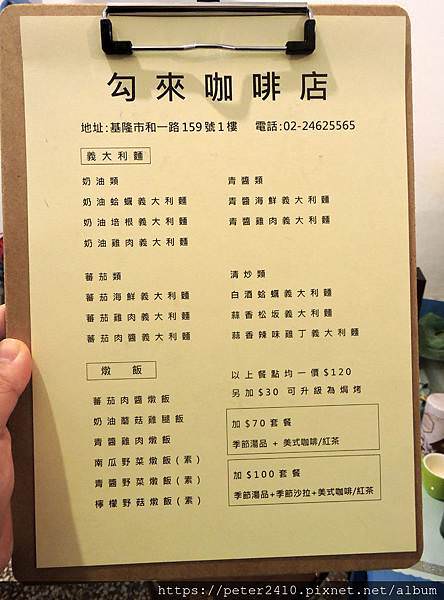 勾來咖啡店
地址:基隆市和一路159號1樓 電話:02-24625565
義大利麵
奶油類
奶油蛤蠣義大利麵
奶油培根義大利麵
奶油雞肉義大利麵
青醬類
青醬海鮮義大利麵
青醬雞肉義大利麵
蕃茄類
蕃茄海鮮義大利麵
蕃茄雞肉義大利麵
蕃茄肉醬義大利麵
清炒類
白酒蛤蠣義大利麵
蒜香松坂義大利麵
蒜香辣味雞丁義大利麵
燉飯
蕃茄肉醬燉飯
奶油蘑菇雞腿飯
青醬雞肉燉飯
南瓜野菜燉飯(素)
青醬野菜燉飯(素)
檸檬野菇燉飯(素)
以上餐點均一價$120
另加$30 可升級為焗烤
加$70套餐
季節湯品 + 美式咖啡/紅茶
加$100套餐
季節湯品+季節沙拉+美式咖啡/紅茶
https://peter2410.pixnet.net/album